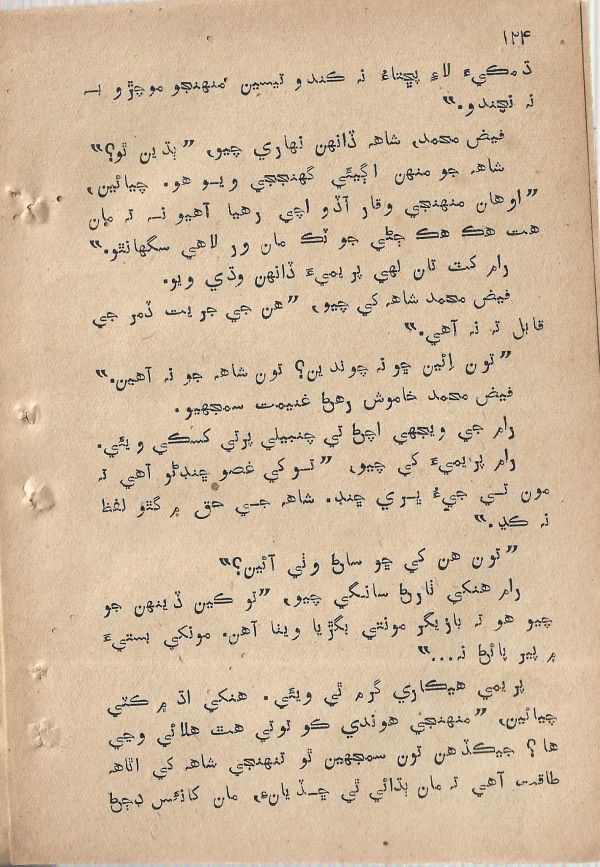 ۱۲۴
ڌمڪيءَ لاءِ پڇتاءُ نہ ڪندو تيسين منهنجو موچڙو بہ
نہ نچندو.“
فيض محمد، شاهہ ڏانهن نهاري چيو، ”ٻڌين ٿو؟“
شاهہ جو منهن اڳيئي گهنججي ويو هو. چيائين،
”اوهان منهنجي وقار آڏو اچي رهيا آهيو نہ تہ مان
هت هڪ هڪ ڄڻي جو ٽڪ مان ور لاهي سگهانٿو.“
رام کٽ تان لهي پريميءَ ڏانهن وڌي ويو.
فيض محمد شاهہ کي چيو، ”هن جي جريت ڏمر جي
قابل تہ نہ آهي.“
”تون ائين ڇو نہ چوندين؟ تون شاهہ جو نہ آهين.“
فيض محمد خاموش رهڻ غنيمت سمجهيو.
رام جي ويجهي اچڻ تي چنبيلي پرتي کسڪي ويئي.
رام پريميءَ کي چيو، ”توکي غصو ڇنڊڻو آهي تہ
مون تي جيءُ ڀري ڇنڊ. شاهہ جي حق ۾ گٿو لفظ
نہ ڪڍ.“
”تون هن کي ڇو ساڻ وٺي آئين؟“
رام هنکي ٺارڻ سانگي چيو، ”تو ڪين ڏينهن جو
چيو هو تہ بازيگر مونتي بگڙيا ويٺا آهن. مونکي بستيءَ
۾ پير پائڻ نہ...“
پريمي هيڪاري گرم ٿي ويئي. هنکي اڌ ۾ ڪٽي
چيائين، ”منهنجي هوندي ڪو توتي هٿ هلائي وڃي
ها؟ جيڪڏهن تون سمجهين ٿو تنهنجي شاهہ کي اٿاهہ
طاقت آهي تہ مان ٻڌائي ٿي ڇڏيانءِ، مان کائنس ڊڄڻ